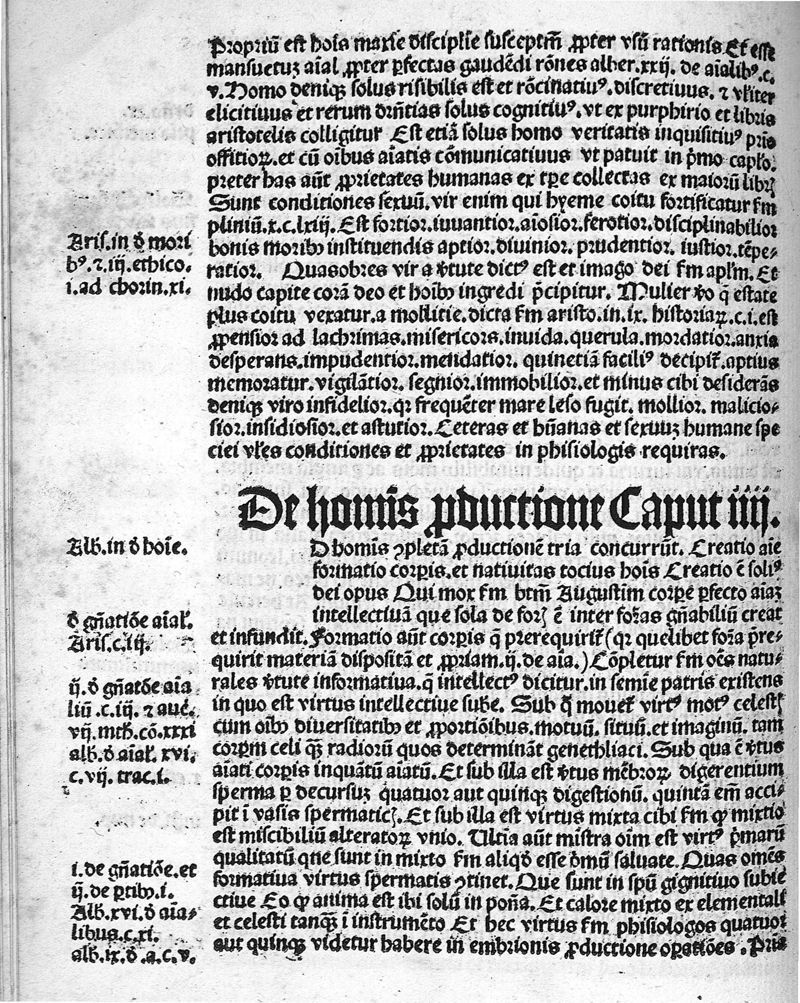 Propriū est hoīs maxīe disciplīe susceptm̄ ꝓpter vsū rationis Et esse
mansuetuꝫ aīal ꝓpter ꝑfectas gaudēdi rōnes alber .xxij. de aīalibꝰ.c.
v. Homo deniqꝫ solus risibilis est et rōcinatiuꝰ. discretiuus. ⁊ vl̄iter
elicitiuus et rerum dr̄ntias solus cognitiuꝰ. vt ex purphirio et libris
aristotelis colligitur Est etiā solus homo veritatis inquisitiuꝰ
offitioꝝ. et cū oībus aīatis cōmunicatiuus vt patuit in pͥmo
preter has aūt ꝓprietates humanas ex collectas ex maiorū
Sunt conditiones sexuū. vir enim qui hyeme coitu fortificatur fm
pliniū.x.c.lxiij. Est fortior. iuuantior. aīosior. ferotior. disciplinabilior
Aris. in ð mori
bꝰ. ⁊.iij. ethico.
i. ad chorin. xi.
bonis moribꝰ instituendis aptior. diuinior. prudentior. iustior. tēpe⸗
ratior. Quasobres vir a v̓tute dictꝰ est et imago dei fm apl̄m. Et
nudo capite corā deo et hoībꝰ ingredi p̄cipitur. Mulier v̓o q̄ estate
plus coitu vexatur. a mollitie. dicta fm aristo. in.ix. historiaꝝ.c.i. est
ꝓpensior ad lachrimas. misericors. inuida. querula. mordatior. anxia
desperans. impudentior. mendatior. quinetiā faciliꝰ decipit̄. aptius
memoratur. vigilātior. segnior. immobilior. et minus cibi desiderās
deniqꝫ viro infidelior. qr frequēter mare leso fugit. mollior. malicio⸗
sior. insidiosior. et astutior. Ceteras et hūanas et sexuuꝫ humane spe
ciei vl̄es conditiones et ꝓprietates in phisiologis requiras.
De homīs ꝓductione Caput iiij.
Alb. in ð hoīe.
D homīs ꝯpletā ꝓductionē tria concurrūt. Creatio aīe
formatio corpis. et natiuitas tocius hoīs Creatio ē soliꝰ
dei opus Qui mox fm btm̄ Augustim corpe ꝑfecto aīaꝫ
intellectiuā que sola de ē inter formas gn̄abiliū creat
ð gn̄atiōe aīal.
Aris. c. iij.
et infundit. Formatio aūt corpis q̄ prerequirit̄ (qr quelibet forma p̄re⸗
quirit materiā dispositā et ꝓpriam. ij. de aīa.) Cōpletur fm oēs natu⸗
ij. ð gn̄atōe aīa
liū .c.iij. ⁊ aue.
vij. mth. cō. xxxi
alb. ð aīal. xvi.
c. vij. trac. i.
rales v̓tute informatiua. q̄ intellectꝰ dicitur. in semīe patris existens
in quo est virtus intellectiue sube. Sub q̄ mouet virtꝰ motꝰ celestꝭ
cum oībꝰ diuersitatibꝰ et ꝓportiōibus. motuū. situū. et imaginū. tam
corpm celi qꝫ radiorū quos determināt genethliaci. Sub qua ē v̓tus
aīati corpis inquātū aīatū. Et sub illa est v̓tus mēbroꝝ digerentium
sperma ꝑ decursuꝫ quatuor aut quinqꝫ digestionū. quintā em̄ acci⸗
pit ī vasis spermaticꝭ. Et sub illa est virtus mixta cibi fm ꝙ mixtio
est miscibiliū alteratoꝝ vnio. Ultīa aūt mistra oīm est virtꝰ pͥmarū
qualitatū que sunt in mixto fm aliqð esse ðmū saluate. Quas omēs
i. de gn̄atiōe. et
ij. de ꝑtibꝰ. i.
Alb. xvi. ð aīa⸗
libus. c. xi.
alb. ix. ð. a. c. v.
formatiua virtus spermatis ꝯtinet. Que sunt in spū gignitiuo subie
ctiue Eo ꝙ anima est ibi solū in poña. Et calore mixto ex elementali
et celesti tanqꝫ ī instrumēto Et hec virtus fm phisiologos quatuor
aut quinqꝫ videtur habere in embrionis ꝓductione oꝑatiōes.